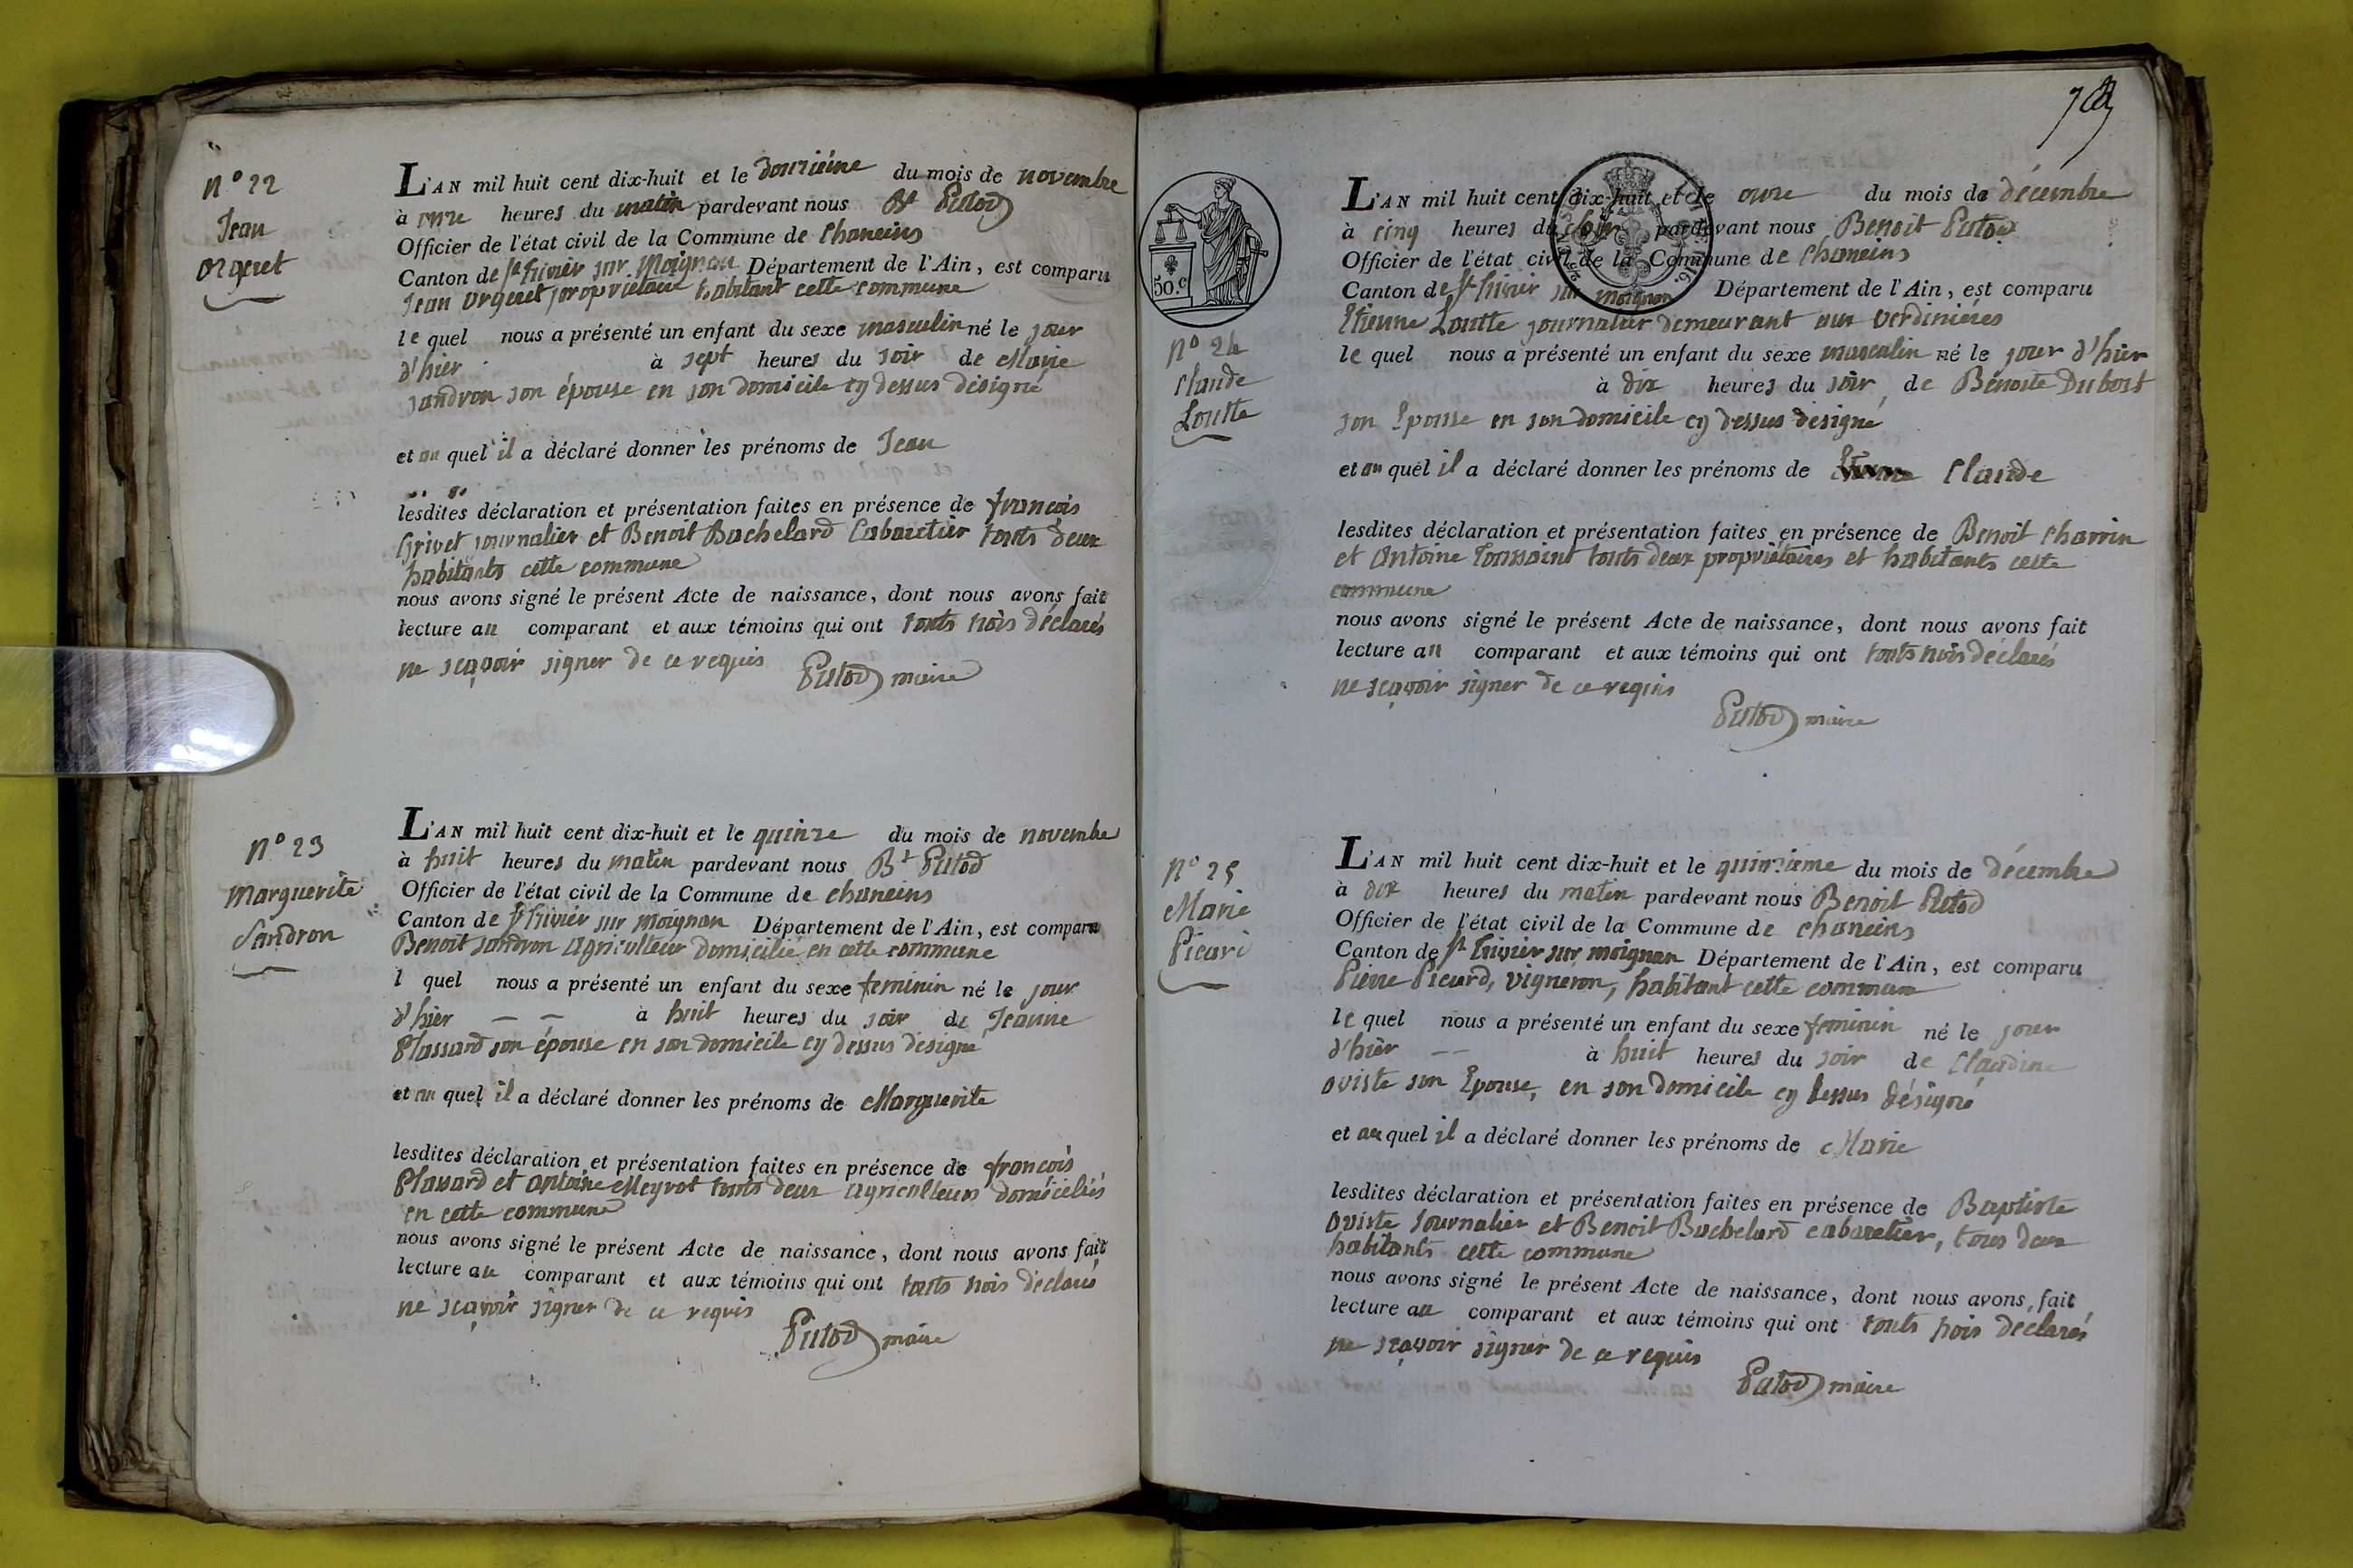 n° 22
Jean
orgeret
L'AN mil huit cent dix-huit et le douzième du mois de novembre
à onze heures du matin pardevant nous Bt Putod
Officier de l'état civil de la Commune de chaneins
Canton de St trivier sur moignan Département de l'Ain, est comparu
Jean orgeret propriétaire habitant cette commune
le quel nous a présenté un enfant du sexe masculin né le jour
d'hier à sept heures du soir de Marie
sandron son épouse en son domicile cy dessus désigné
et au quel il a déclaré donner les prénoms de Jean
lesdites déclaration et présentation faites en présence de françois
Grivet journalier et Benoit Bachelard Cabaretier touts deux
habitants cette commune
nous avons signé le présent Acte de naissance, dont nous avons fait
lecture au comparant et aux témoins qui ont touts trois déclarés
ne sçavoir signer de ce requis
Putod maire
n° 23
Marguerite
Sandron
L'AN mil huit cent dix-huit et le quinze du mois de novembre
à huit heures du matin pardevant nous Bt Putod
Officier de l'état civil de la Commune de chaneins
Canton de St trivier sur moignan Département de l'Ain, est comparu
Benoit sandron agriculteur domicilié en cette commune
l quel nous a présenté un enfant du sexe feminin né le jour
d'hier — — à huit heures du soir de Jeanne
Plassard son épouse en son domicile cy dessus désigné
et au quel il a déclaré donner les prénoms de Marguerite
lesdites déclaration et présentation faites en présence de françois
Plassard et antoine Meyrot touts deux agriculteurs domiciliés
en cette commune
nous avons signé le présent Acte de naissance, dont nous avons fait
lecture au comparant et aux témoins qui ont touts trois déclarés
ne sçavoir signer de ce requis
Putod maire
50.c
n° 24
Claude
Loutte
L'AN mil huit cent dix-huit et le onze du mois de décembre
à cinq heures du soir pardevant nous Benoit Putod
Officier de l'état civil de la Commune de chaneins
Canton de St trivier sur moignan Département de l'Ain, est comparu
Etienne Loutte journalier demeurant aux verdinières
le quel nous a présenté un enfant du sexe masculin né le jour d'hier
à dix heures du soir de Benoite Dubost
son Epouse en son domicile cy dessus désigné
et au quel il a déclaré donner les prénoms de Claude
lesdites déclaration et présentation faites en présence de Benoit Charrin
et Antoine Toussaint touts deux propriétaires et habitants cette
commune
nous avons signé le présent Acte de naissance, dont nous avons fait
lecture au comparant et aux témoins qui ont touts trois déclarés
ne sçavoir signer de ce requis
Putod maire
n° 25
Marie
Picard
L'AN mil huit cent dix-huit et le quinzième du mois de décembre
à dix heures du matin pardevant nous Benoit Putod
Officier de l'état civil de la Commune de chaneins
Canton de St trivier sur moignan Département de l'Ain, est comparu
Pierre Picard, vigneron, habitant cette commune
le quel nous a présenté un enfant du sexe feminin né le jour
d'hier — — à huit heures du soir de Claudine
oviste son Epouse, en son domicile cy dessus désigné
et au quel il a déclaré donner les prénoms de Marie
lesdites déclaration et présentation faites en présence de Baptiste
oviste journalier et Benoit Bachelard cabaretier, tous deux
habitants cette commune
nous avons signé le présent Acte de naissance, dont nous avons fait
lecture au comparant et aux témoins qui ont touts trois déclarés
ne sçavoir signer de ce requis
Putod maire